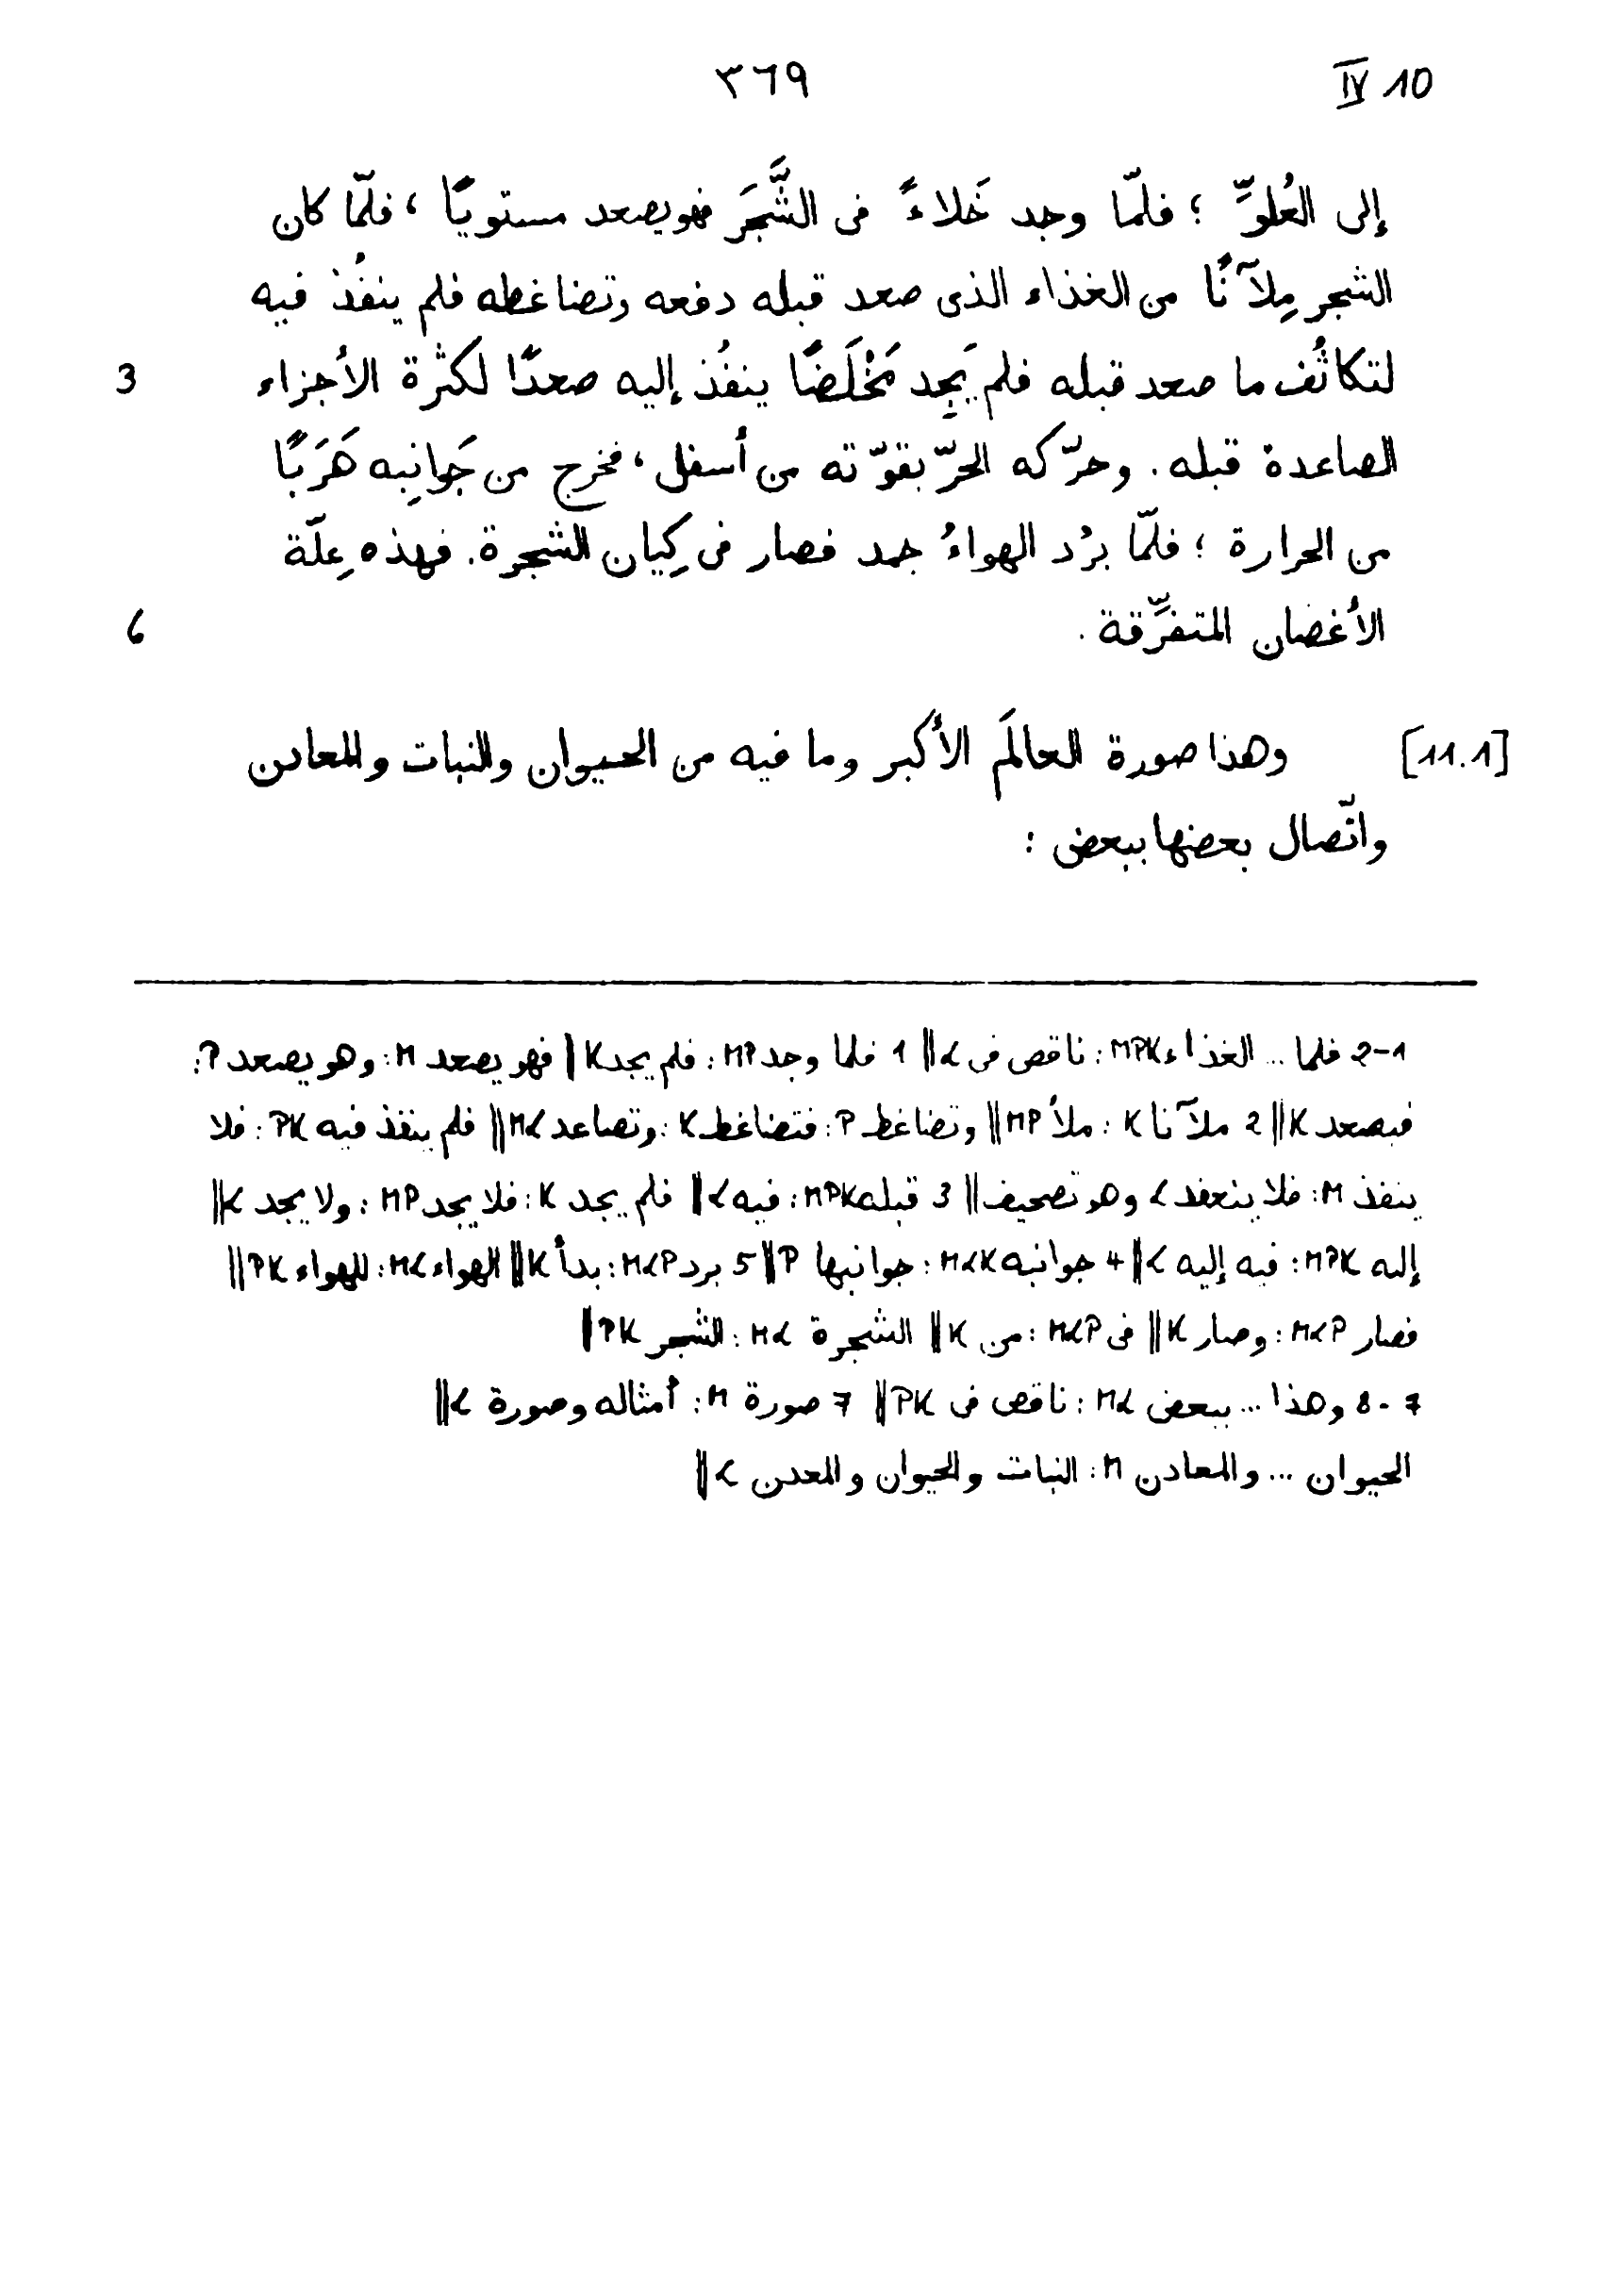 IV 10
٣٦٩
إلى العُلوِّ ؛ فلمّا وجد خَلاءً فى الشَّجَر فهو يصعد مستويًا ، فلمّا كان
الشجر مِلآنًا من الغذاء الذى صعد قبله دفعه وتضاغطه فلم ينفُذ فيه
3 لتكاثُف ما صعد قبله فلم يَجِد مَخْلَصًا ينفُذ إليه صعدًا لكثرة الأجزاء
الصاعدة قبله . وحرّكه الحرّ بقوّته من أسفل ، فخرج من جَوانِبه هَرَبًا
من الحرارة ؛ فلمّا برُد الهواءُ جمد فصار فى كِيان الشجرة . فهذه عِلّة
6 الأغصان المتفرِّقة .
[11.1] وهذا صورة العالَم الأكبر وما فيه من الحيوان والنبات والمعادن
واتّصال بعضها ببعض :
1-2 فلما ... الغذاء MPK : ناقص فى L || 1 فلما وجد MP : فلم يجد K | فهو يصعد M : وهو يصعد P :
فيصعد K || 2 ملآنا K : ملأ MP || وتضاغط P : فتضاغط K : وتصاعد ML || فلم ينفذ فيه PK : فلا
ينفذ M : فلا ينعقد L وهو تصحيف || 3 قبله MPK : فيه L || فلم يجد K : فلا يجد MP : ولا يجد L ||
إليه MPK : فيه إليه L || 4 جوانبه MLK : جوانبها P || 5 برد MLP : بدأ K || الهواء ML : للهواء PK ||
فصار MLP : وصار K || فى MLP : من K || الشجرة ML : الشجر PK ||
7-8 وهذا ... ببعض ML : ناقص فى PK || 7 صورة M : أمثاله وصورة L ||
الحيوان ... والمعادن M : النبات والحيوان والمعدن L ||